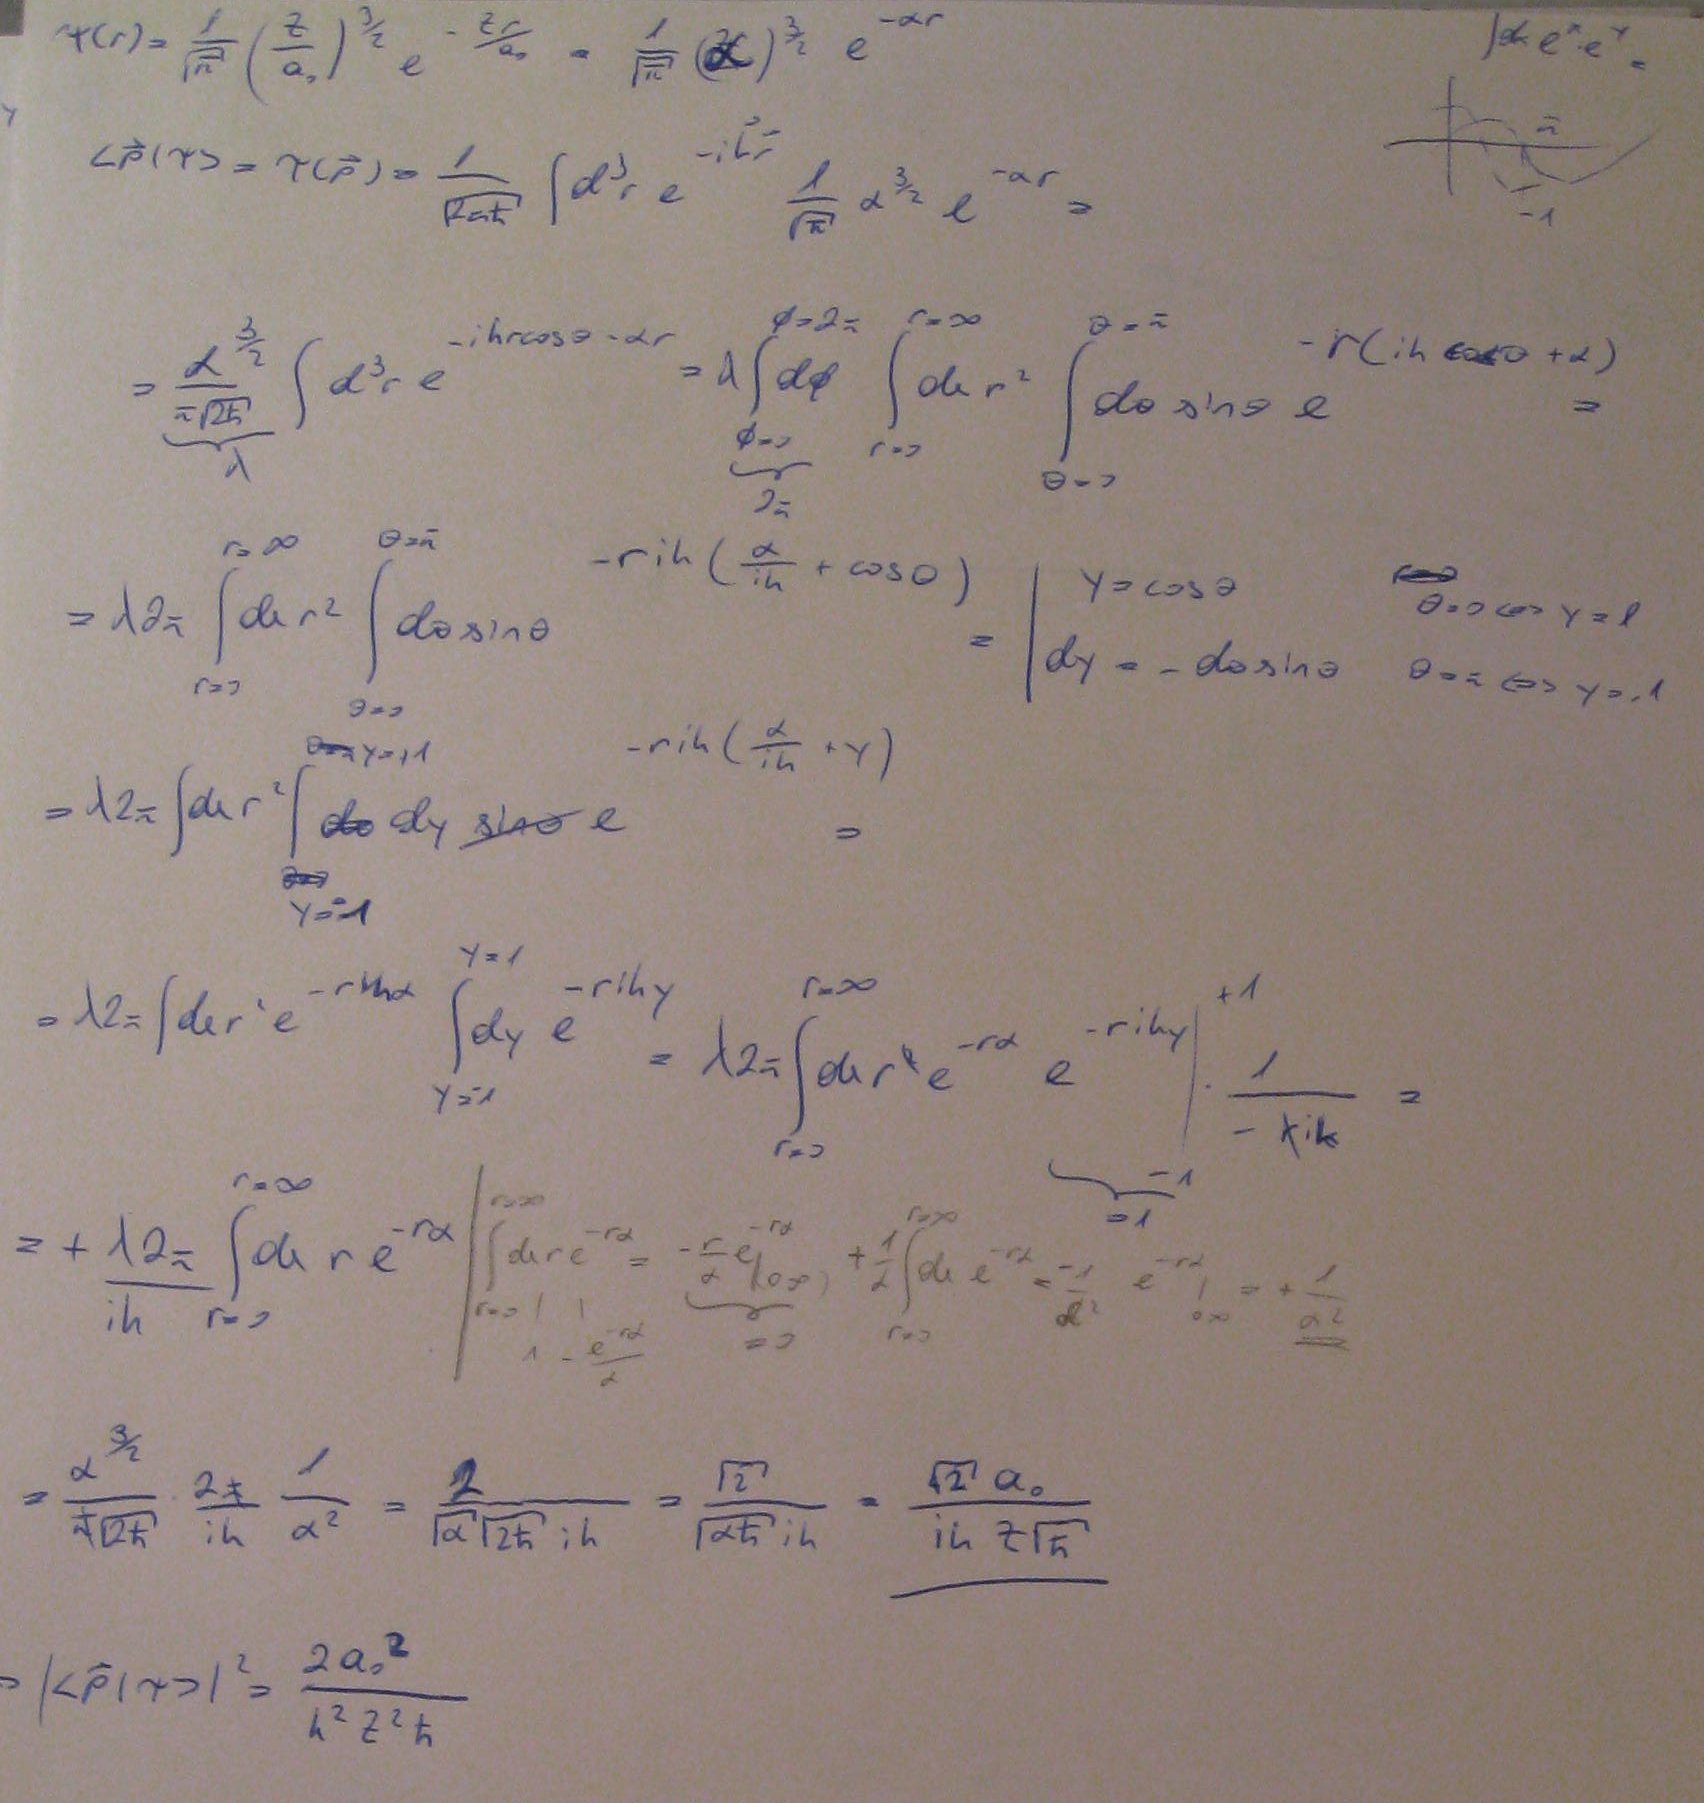 ψ(r) = 1/√π (Z/a₀)^{3/2} e^{-Zr/a₀} = 1/√π (α)^{3/2} e^{-αr}
∫dx e^x · e^x =
<p⃗|ψ> = ψ(p⃗) = 1/√(2πħ) ∫d³r e^{-ik⃗r⃗} 1/√π α^{3/2} e^{-αr} =
π
-1
= α^{3/2}/(π√(2ħ)) ∫d³r e^{-ikrcosθ-αr} = λ ∫_{φ=0}^{φ=2π} dφ ∫_{r=0}^{r=∞} dr r² ∫_{θ=0}^{θ=π} dθ sinθ e^{-r(ik cosθ+α)} =
λ 2π
= λ2π ∫_{r=0}^{r=∞} dr r² ∫_{θ=0}^{θ=π} dθ sinθ -rik(α/ik + cosθ) = | y = cosθ θ=0 ⇔ y=1
dy = -dθ sinθ θ=π ⇔ y=-1
= λ2π ∫dr r² ∫_{y=-1}^{y=+1} dy sinθ e^{-rik(α/ik + y)} =
= λ2π ∫dr r² e^{-rα} ∫_{y=-1}^{y=1} dy e^{-riky} = λ2π ∫_{r=0}^{r=∞} dr r² e^{-rα} e^{-riky} |_{-1}^{+1} · 1/(-rik) =
=1
= + λ2π/ik ∫_{r=0}^{r=∞} dr r e^{-rα} | ∫_{r=0}^{r=∞} dr r e^{-rα} = -r/α e^{-rα} |_{0∞} + 1/α ∫_{r=0}^{r=∞} dr e^{-rα} = -1/α² e^{-rα} |_{0∞} = + 1/α²
1 -e^{-rα}/α =0
= α^{3/2}/(π√(2ħ)) · 2π/ik 1/α² = 2/(√α √(2ħ) ik) = √2/(√(αħ) ik) = √2 a₀/(ik Z√ħ)
⇒ |<p⃗|ψ>|² = 2a₀²/(k²Z²ħ)